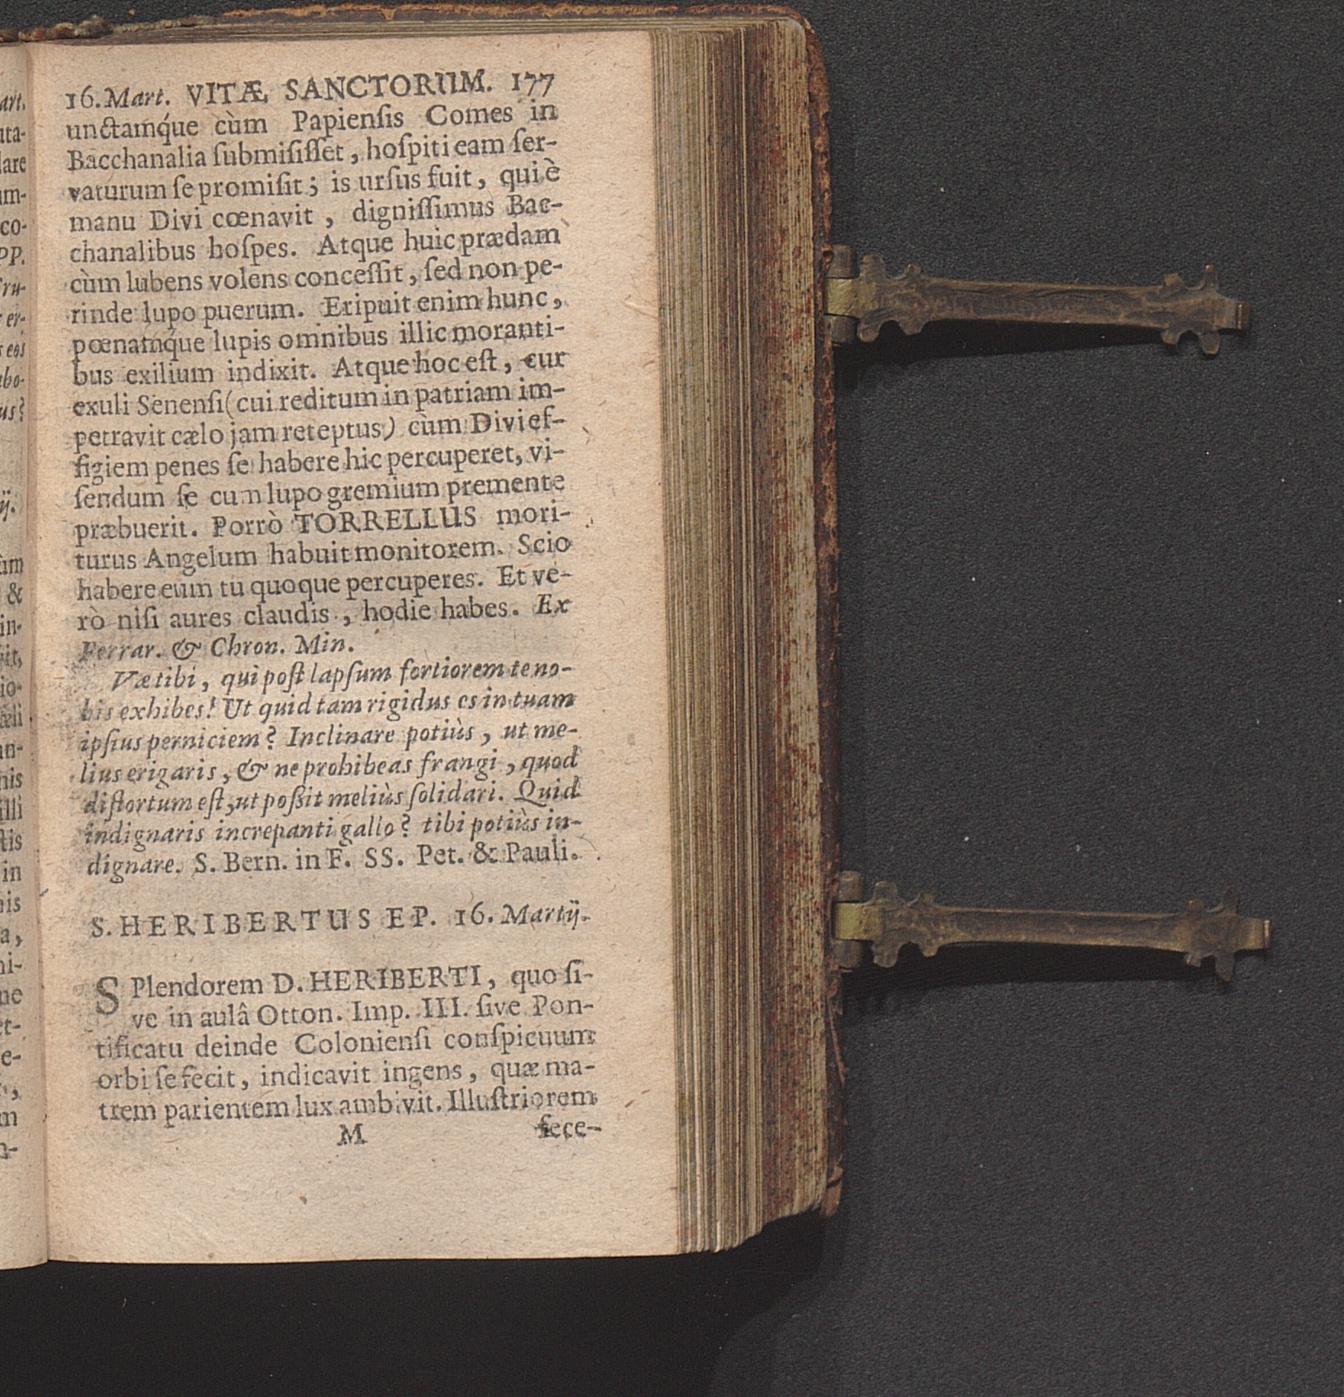 16. Mart. VITÆ SANCTORUM. 177
unctamq́ue cùm Papiensis Comes in
Bacchanalia submisisset, hospiti eam ser-
vaturum se promisit; is ursus fuit, qui è
manu Divi cœnavit, dignissimus Bac-
chanalibus hospes. Atque huic prædam
cùm lubens volens concessit, sed non pe-
rinde lupo puerum. Eripuit enim hunc,
pœnamq́ue lupis omnibus illic moranti-
bus exilium indixit. Atque hoc est, cur
exuli Senensi (cui reditum in patriam im-
petravit cælo jam reteptus) cùm Divi ef-
figiem penes se habere hic percuperet, vi-
sendum se cum lupo gremium premente
præbuerit. Porrò TORRELLUS mori-
turus Angelum habuit monitorem. Scio
habere eum tu quoque percuperes. Et ve-
rò nisi aures claudis, hodie habes. Ex
Ferrar. & Chron. Min.
Væ tibi, qui post lapsum fortiorem te no-
bis exhibes! Ut quid tam rigidus es in tuam
ipsius perniciem? Inclinare potiùs, ut me-
lius erigaris, & ne prohibeas frangi, quod
distortum est, ut possit meliùs solidari. Quid
indignaris increpanti gallo? tibi potiùs in-
dignare. S. Bern. in F. SS. Pet. & Pauli.
S. HERIBERTUS EP. 16. Martij.
SPlendorem D. HERIBERTI, quo si-
ve in aulâ Otton. Imp. III. sive Pon-
tificatu deinde Coloniensi conspicuum
orbi se fecit, indicavit ingens, quæ ma-
trem parientem lux ambivit. Illustriorem
M fece-